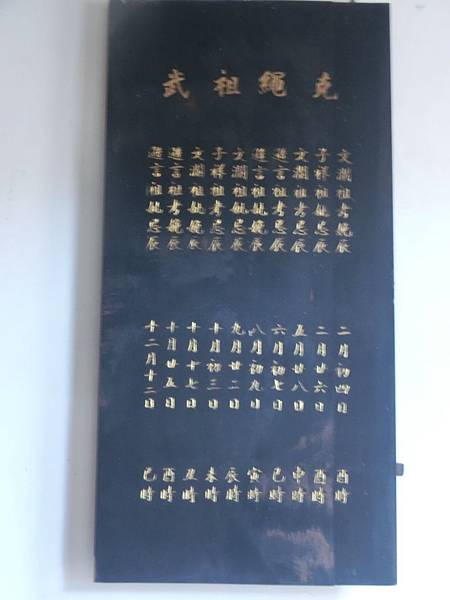 克繩祖武
文瀾祖考娩辰 二月初四日 酉時
子祥祖妣忌辰 二月廿六日 酉時
文瀾祖考忌辰 五月廿八日 申時
遜言祖考忌辰 六月初七日 巳時
遜言祖妣娩辰 八月初九日 寅時
文瀾祖妣忌辰 九月廿二日 辰時
子祥祖考忌辰 十月初三日 未時
文瀾祖妣娩辰 十月十七日 丑時
遜言祖考娩辰 十月廿五日 酉時
遜言祖妣忌辰 十二月十二日 巳時